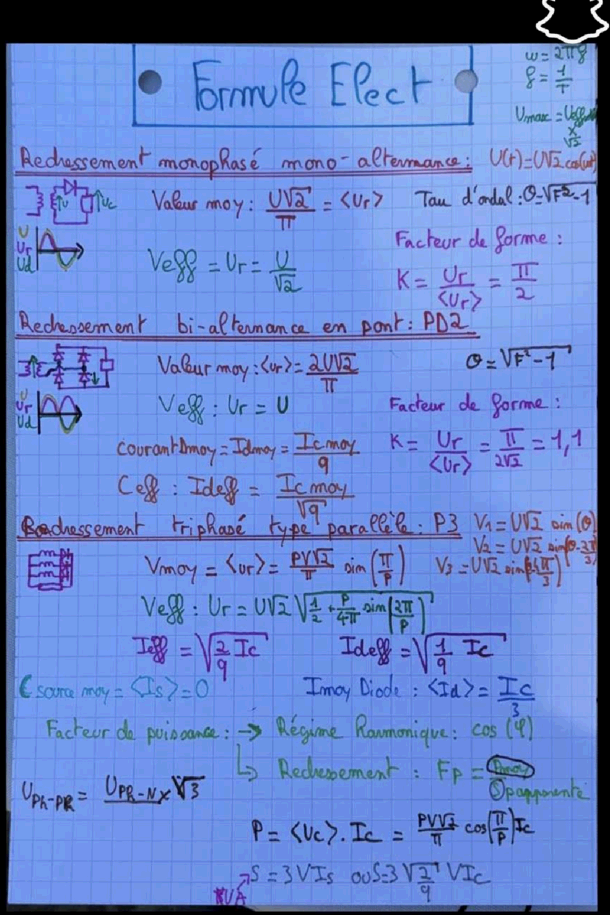 Formule Elect
ω = 2πf
f = 1/T
Umax = Ueff × √2
Redressement monophasé mono-alternance: U(t)=U√2 cos(ωt)
Valeur moy: U√2/π = <Ur> Tau d'ondul: σ=√F²-1
U
Ur
Ud
Veff = Ur = U/√2
Facteur de forme:
K = Ur/<Ur> = π/2
Redressement bi-alternance en pont: PD2
Valeur moy: <ur> = 2U√2/π σ=√F²-1
U
Ur
Ud
Veff: Ur = U
Facteur de forme:
K = Ur/<Ur> = π/2√2 = 1,1
courant Dmoy = Idmoy = Icmoy/q
Ceff: Ideff = Icmoy/√q
Redressement triphasé type parallèle: P3
V1 = U√2 sin(θ)
V2 = U√2 sin(θ-2π/3)
Vmoy = <ur> = PV√2/π sin(π/P)
V3 = U√2 sin(θ-4π/3)
Veff: Ur = U√2 √1/2 + P/4π sin(2π/P)
Ieff = √2/9 Ic Ideff = √1/9 Ic
C source moy = <Is> = 0 Imoy Diode: <Id> = Ic/3
Facteur de puissance: → Régime Harmonique: cos(φ)
↳ Redressement: Fp = Pmoy/Spapparente
UPh-Ph = UPh-N × √3
P = <Uc>. Ic = PV√2/π cos(π/P) Ic
S = 3VIs ou S=3√2/9 VIc
KVA